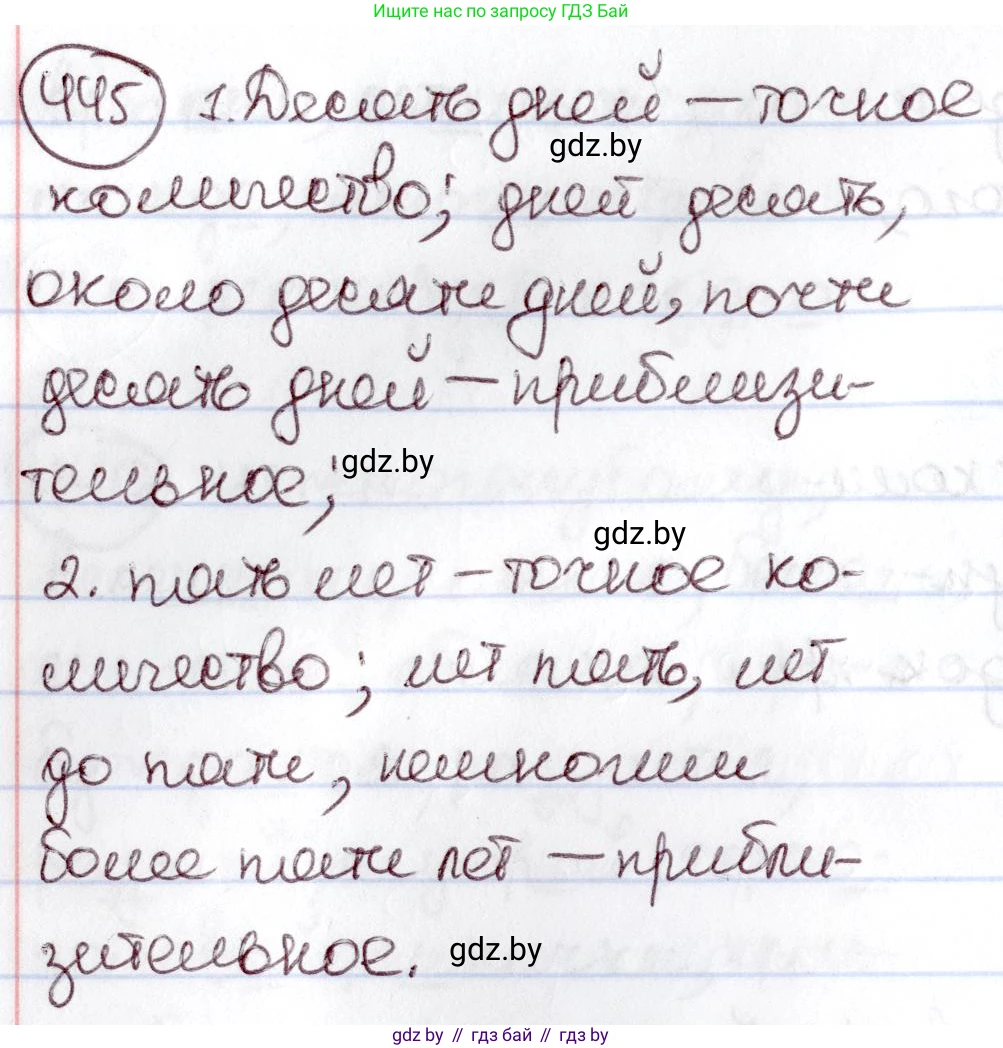 Ищите нас по запросу ГДЗ Бай
445 1. Десять дней – точное
gdz.by
количество; дней десять,
около десяти дней, почти
десять дней – приблизи-
тельное;
gdz.by
gdz.by
2. пять лет – точное ко-
личество; лет пять, лет
до пяти, немногим
более пяти лет – прибли-
зительное.
gdz.by
gdz.by // гдз бай // гдз by